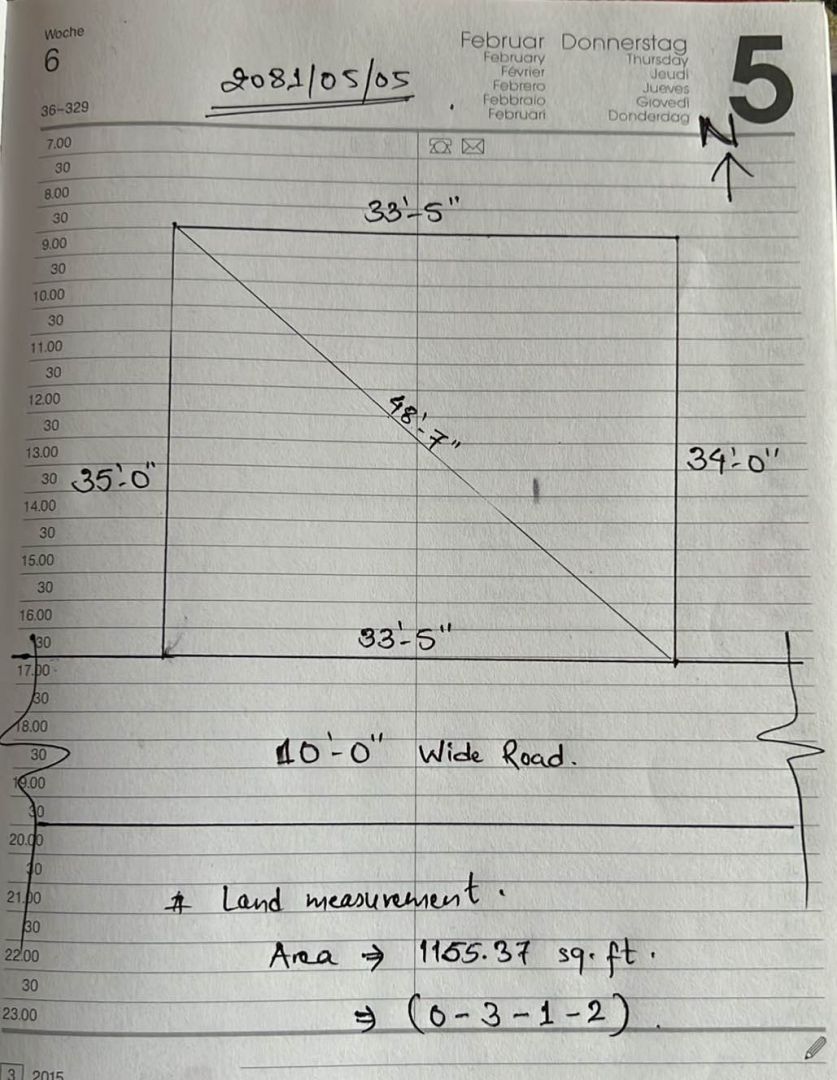 Woche
6
36-329
2081/05/05
Februar Donnerstag
February Thursday
Février Jeudi
Febrero Jueves
Febbraio Giovedì
Februari Donderdag
5
N
7.00
30
8.00
30
9.00
30
10.00
30
11.00
30
12.00
30
13.00
30
14.00
30
15.00
30
16.00
30
17.00
30
18.00
30
19.00
30
20.00
30
21.00
30
22.00
30
23.00
33'-5"
48'-7"
35'-0"
34'-0"
33'-5"
10'-0" Wide Road.
# Land measurement.
Area ⇒ 1155.37 sq.ft.
⇒ (0-3-1-2).
3 2015